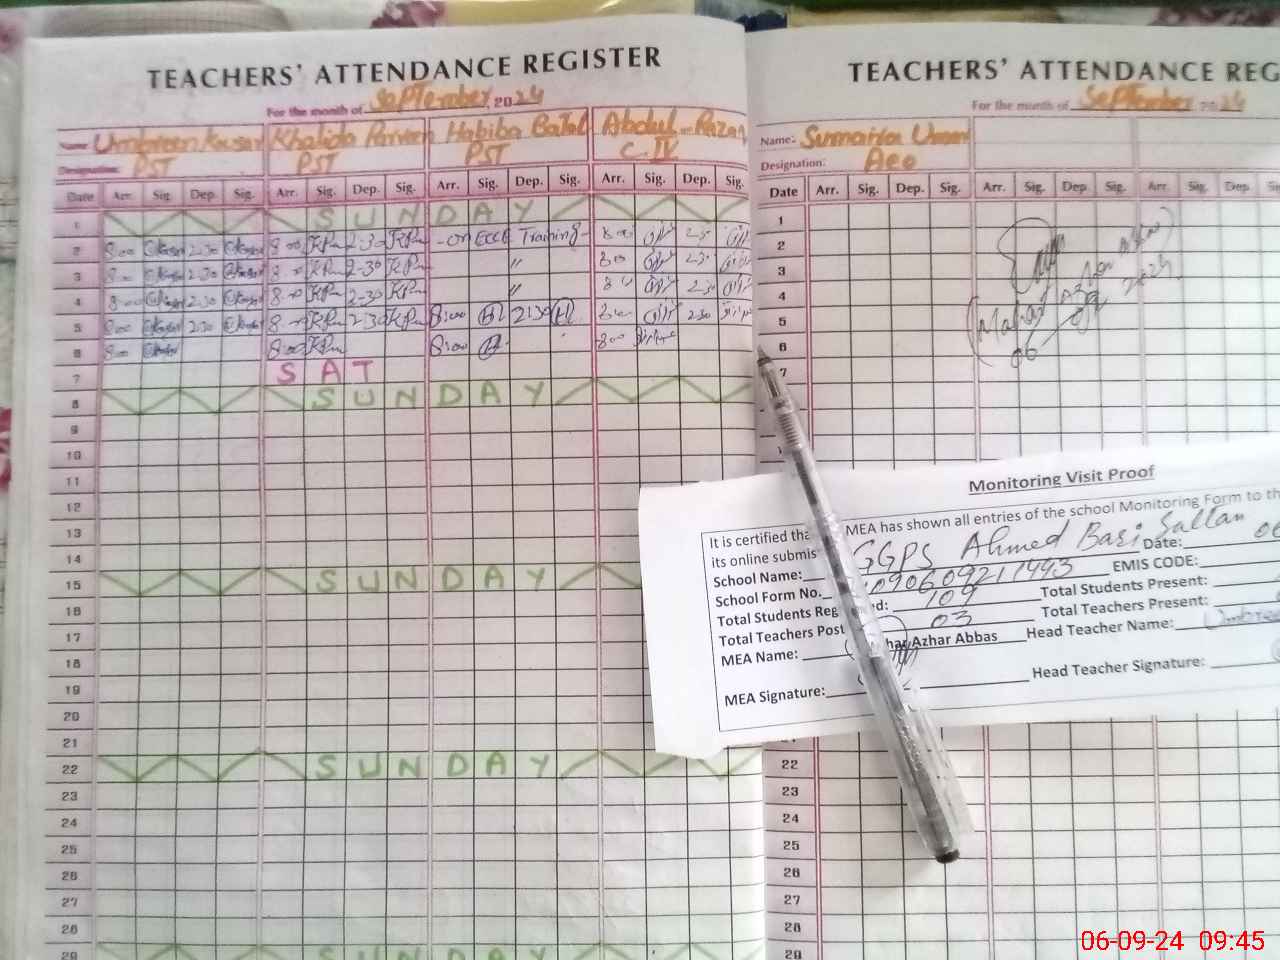 TEACHERS' ATTENDANCE REGISTER
For the month of September, 2024
Name Umbreen Kausar Khalida Parveen Habiba Batol Abdul Razaq
Designation: PST PST PST C.IV
Date Arr. Sig. Dep. Sig. Arr. Sig. Dep. Sig. Arr. Sig. Dep. Sig. Arr. Sig. Dep. Sig.
1 SUNDAY
2 8:00 2:30 8:00 KPn 2-30 KPn -on ECCE Training 8:00 2:30
3 8:00 2:30 8:00 KPn 2-30 KPn " 8:00 2:30
4 8:00 2:30 8:00 KPn 2-30 KPn " 8:00 2:30
5 8:00 2:30 8:00 KPn 2-30 KPn 8:00 H 2:30 H 8:00 2:30
6 8:00 8:00 KPn 8:00 H 8:00
7 SAT
8 SUNDAY
9
10
11
12
13
14
15 SUNDAY
16
17
18
19
20
21
22 SUNDAY
23
24
25
26
27
28
29 SUNDAY
TEACHERS' ATTENDANCE REG
For the month of September 2024
Name: Sumaira Umar
Designation: Aeo
Date Arr. Sig. Dep. Sig. Arr. Sig. Dep. Sig. Arr. Sig. Dep.
1
2
3
4
5
6
7
Monitoring Visit Proof
It is certified tha MEA has shown all entries of the school Monitoring Form to th
its online submis
School Name: GGPS Ahmed Basi Sultan Date:
School Form No. EMIS CODE:
Total Students Reg ed: 109 Total Students Present:
Total Teachers Post 03 Total Teachers Present:
MEA Name: har Azhar Abbas Head Teacher Name: Umbree
MEA Signature: Head Teacher Signature:
22
23
24
25
26
27
28
29
06-09-24 09:45